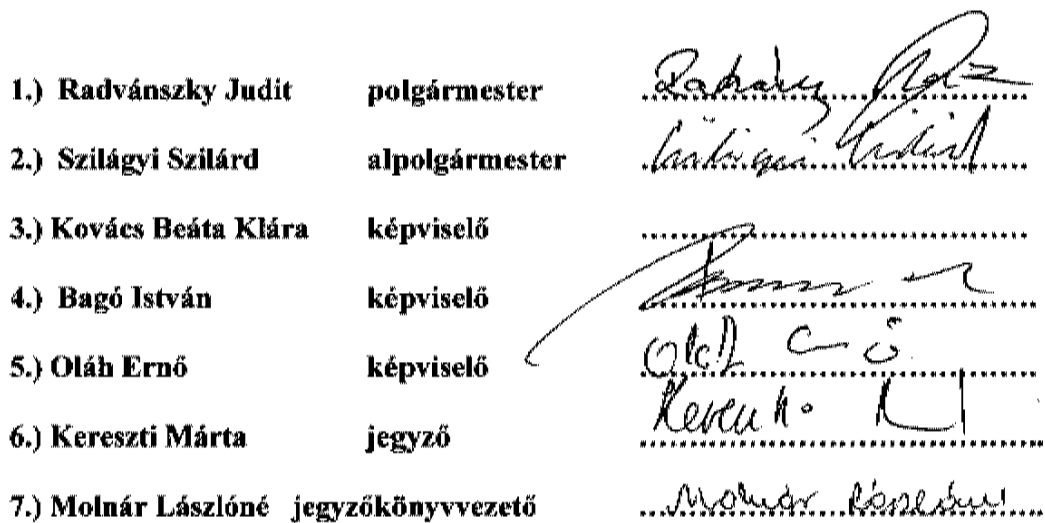 1.) Radvánszky Judit polgármester
2.) Szilágyi Szilárd alpolgármester
3.) Kovács Beáta Klára képviselő
4.) Bagó István képviselő
5.) Oláh Ernő képviselő
6.) Kereszti Márta jegyző
7.) Molnár Lászlóné jegyzőkönyvvezető Molnár Lászlóné